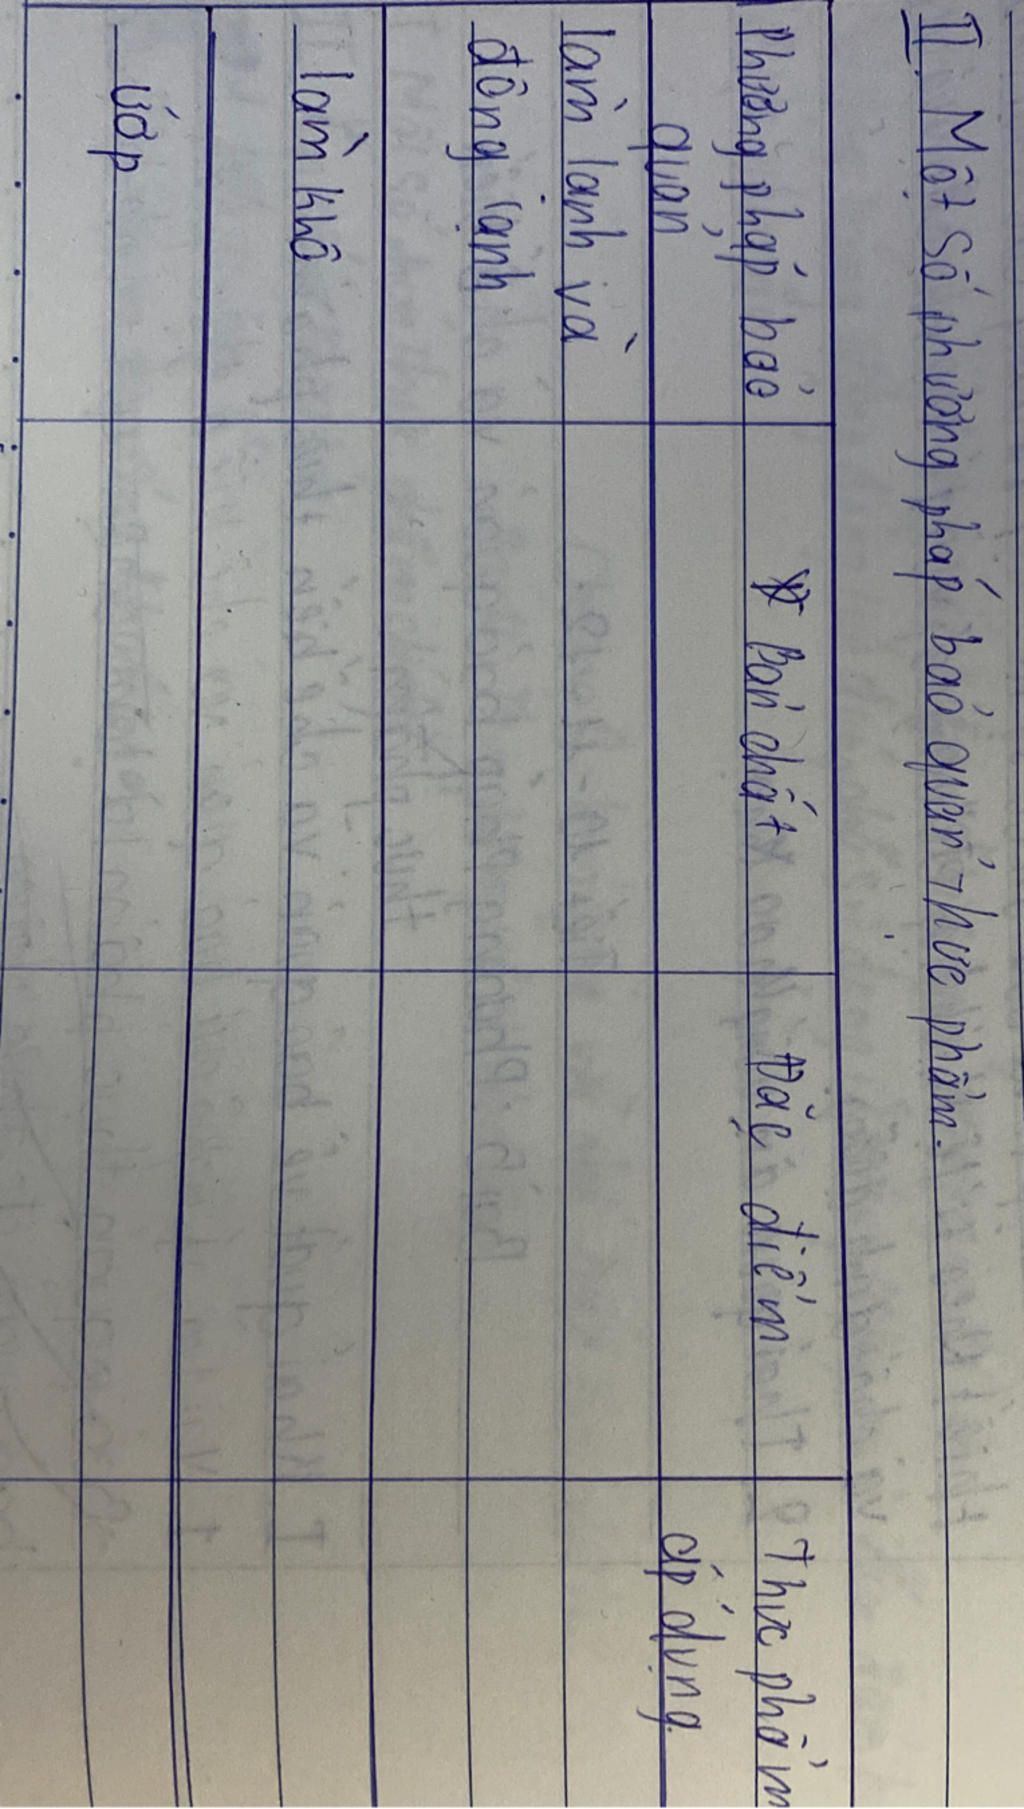 II. Một số phương pháp bảo quản thực phẩm.
Phương pháp bảo quản
Bản chất
Đặc điểm
Thực phẩm áp dụng
làm lạnh và
đông lạnh
làm khô
ướp